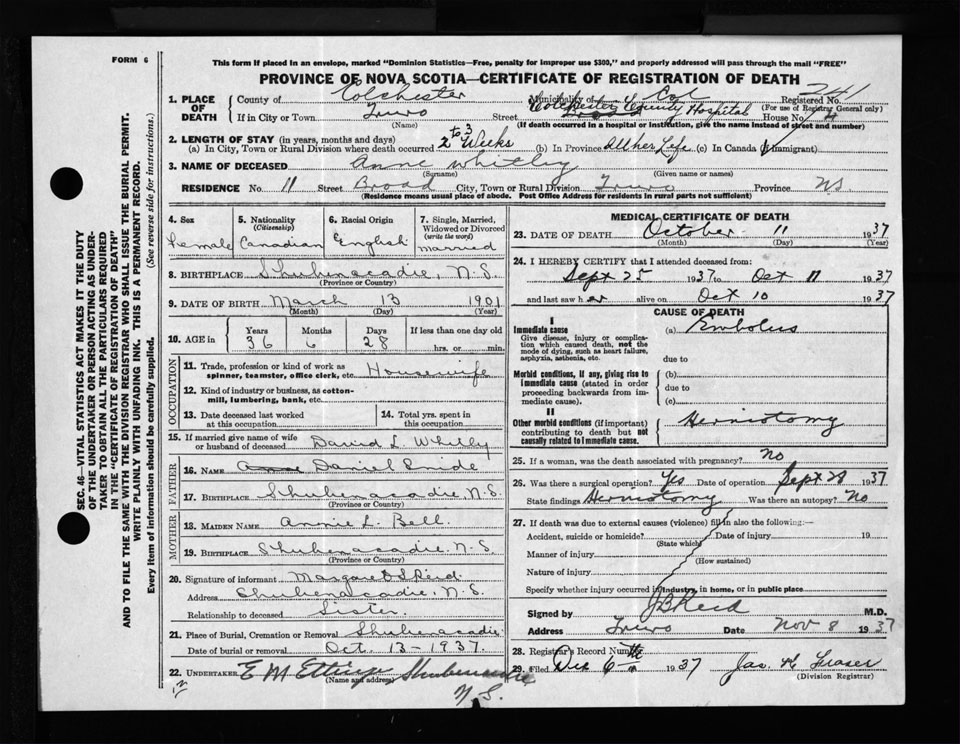 FORM 6
This form if placed in an envelope, marked "Dominion Statistics—Free, penalty for improper use $300," and properly addressed will pass through the mail "FREE"
PROVINCE OF NOVA SCOTIA—CERTIFICATE OF REGISTRATION OF DEATH
241
1. PLACE OF DEATH
County of Colchester Municipality of Col Registered No.
(For use of Registrar General only)
If in City or Town Truro Street Colchester County Hospital House No. 4
(Name) (If death occurred in a hospital or institution, give the name instead of street and number)
2. LENGTH OF STAY (in years, months and days)
(a) In City, Town or Rural Division where death occurred 2 to 3 Weeks (b) In Province all her Life (c) In Canada (if immigrant)
3. NAME OF DECEASED Anne Whitley
(Surname) (Given name or names)
RESIDENCE No. 11 Street Broad City, Town or Rural Division Truro Province NS
(Residence means usual place of abode. Post Office Address for residents in rural parts not sufficient)
4. Sex
female
5. Nationality
(Citizenship)
Canadian
6. Racial Origin
English
7. Single, Married, Widowed or Divorced
(write the word)
married
8. BIRTHPLACE Shubenacadie, N.S.
(Province or Country)
9. DATE OF BIRTH March 13 1901
(Month) (Day) (Year)
10. AGE in
Years Months Days If less than one day old
36 6 28 hrs. or min.
OCCUPATION
11. Trade, profession or kind of work as spinner, teamster, office clerk, etc. Housewife
12. Kind of industry or business, as cotton-mill, lumbering, bank, etc.
13. Date deceased last worked at this occupation
14. Total yrs. spent in this occupation
15. If married give name of wife or husband of deceased David L Whitley
FATHER
16. NAME Daniel Snide
17. BIRTHPLACE Shubenacadie N.S.
(Province or Country)
MOTHER
18. MAIDEN NAME Annie L. Bell.
19. BIRTHPLACE Shubenacadie, N.S.
(Province or Country)
20. Signature of informant Margaret
Address Shubenacadie, N.S.
Relationship to deceased Sister.
21. Place of Burial, Cremation or Removal Shubenacadie
Date of burial or removal Oct. 13 - 1937.
22. UNDERTAKER E M Etting Shubenacadie
(Name and address)
N.S.
MEDICAL CERTIFICATE OF DEATH
23. DATE OF DEATH October 11 1937
(Month) (Day) (Year)
24. I HEREBY CERTIFY that I attended deceased from:
Sept 25 1937 to Oct 11 1937
and last saw her alive on Oct 10 1937
CAUSE OF DEATH
I
Immediate cause (a) Embolus
Give disease, injury or complication which caused death, not the mode of dying, such as heart failure, asphyxia, asthenia, etc.
due to
Morbid conditions, if any, giving rise to immediate cause (stated in order proceeding backwards from immediate cause).
(b)
due to
(c)
II
Other morbid conditions (if important) contributing to death but not causally related to immediate cause.
Herniotomy
25. If a woman, was the death associated with pregnancy? No
26. Was there a surgical operation? Yes Date of operation Sept 28 1937
State findings Herniotomy Was there an autopsy? No
27. If death was due to external causes (violence) fill in also the following:—
Accident, suicide or homicide? Date of injury 19
(State which)
Manner of injury
(How sustained)
Nature of injury
Specify whether injury occurred in industry, in home, or in public place
Signed by J B Reid M.D.
Address Truro Date Nov 8 1937
28. Registrar's Record Number
29. Filed Dec 6 1937 Jas. H Fraser
(Division Registrar)
SEC. 46—VITAL STATISTICS ACT MAKES IT THE DUTY
OF THE UNDERTAKER OR PERSON ACTING AS UNDER-
TAKER TO OBTAIN ALL THE PARTICULARS REQUIRED
IN THE "CERTIFICATE OF REGISTRATION OF DEATH"
AND TO FILE THE SAME WITH THE DIVISION REGISTRAR WHO SHALL ISSUE THE BURIAL PERMIT.
WRITE PLAINLY WITH UNFADING INK. THIS IS A PERMANENT RECORD.
Every item of information should be carefully supplied. (See reverse side for instructions.)